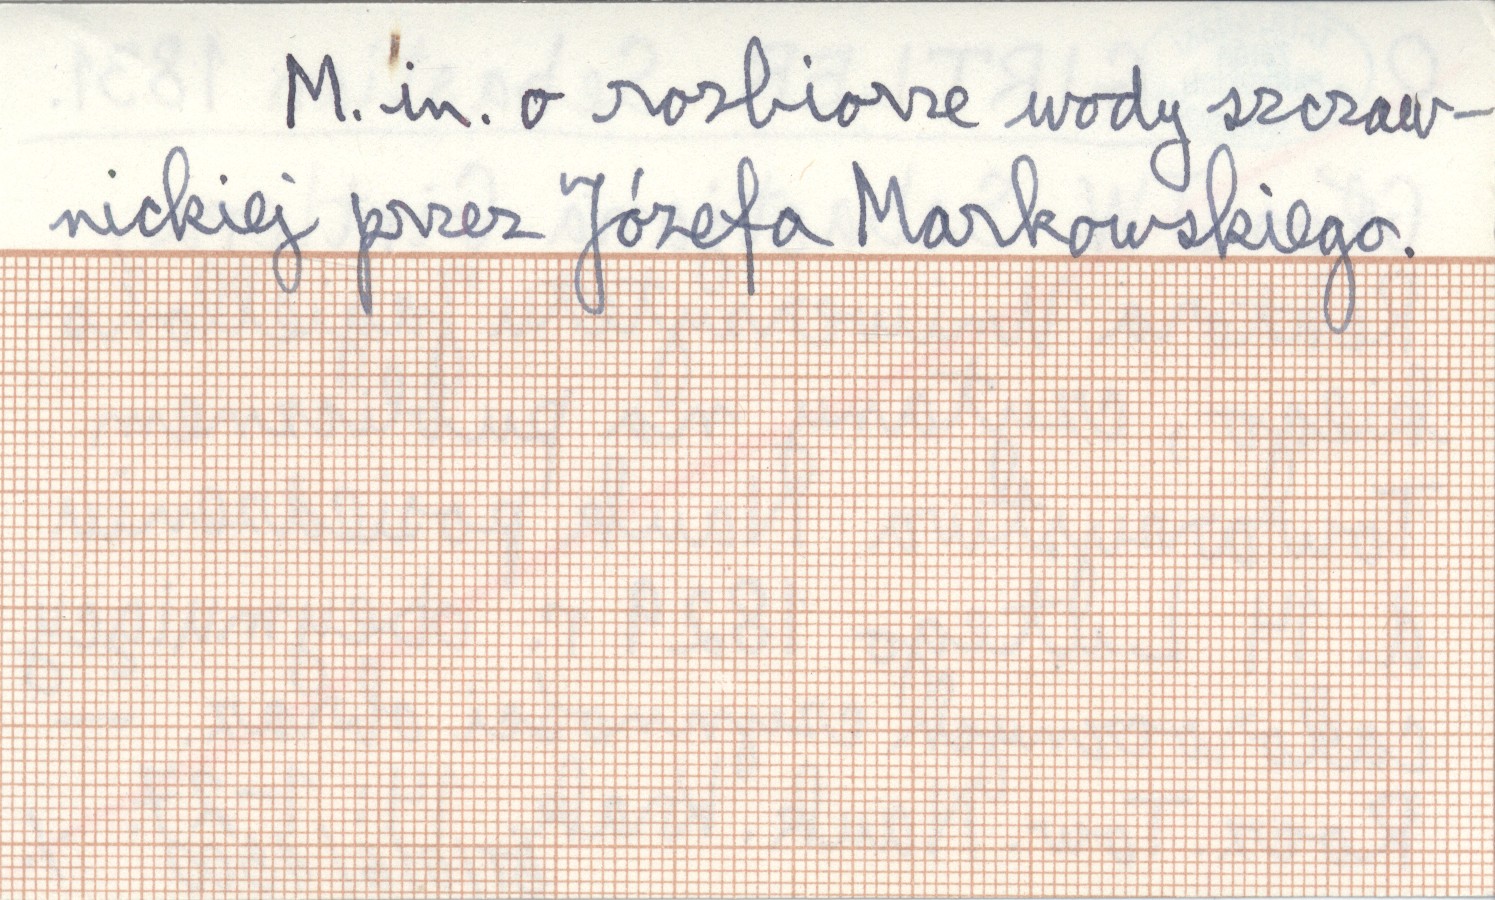 M. in. o rozbiorze wody szczaw-
nickiej przez Józefa Markowskiego.